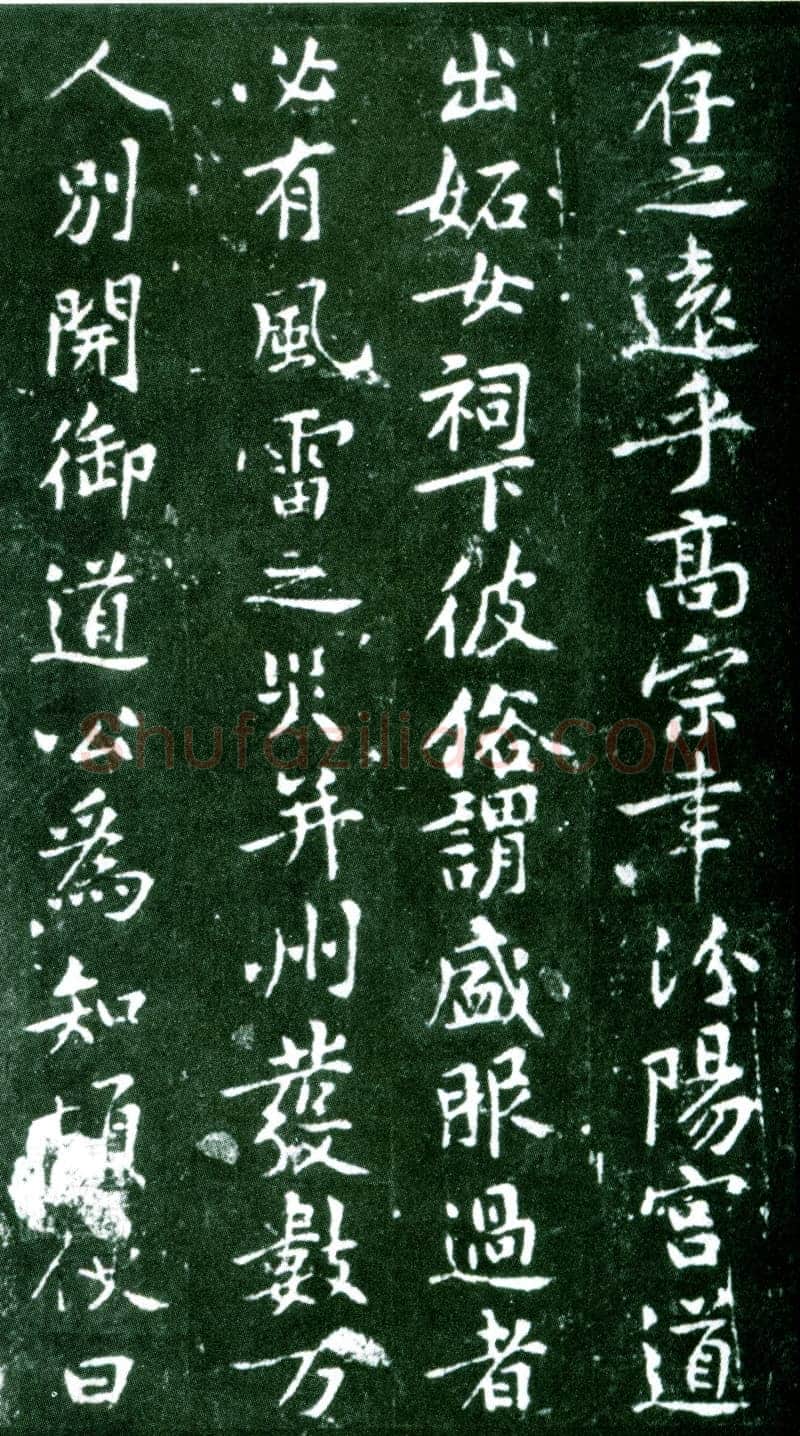 存之遠乎高宗幸汾陽宮道
出妬女祠下彼俗謂盛服過者
必有風雷之災并州發數万
人別開御道公爲知頓使曰
Shufaziliao.COM